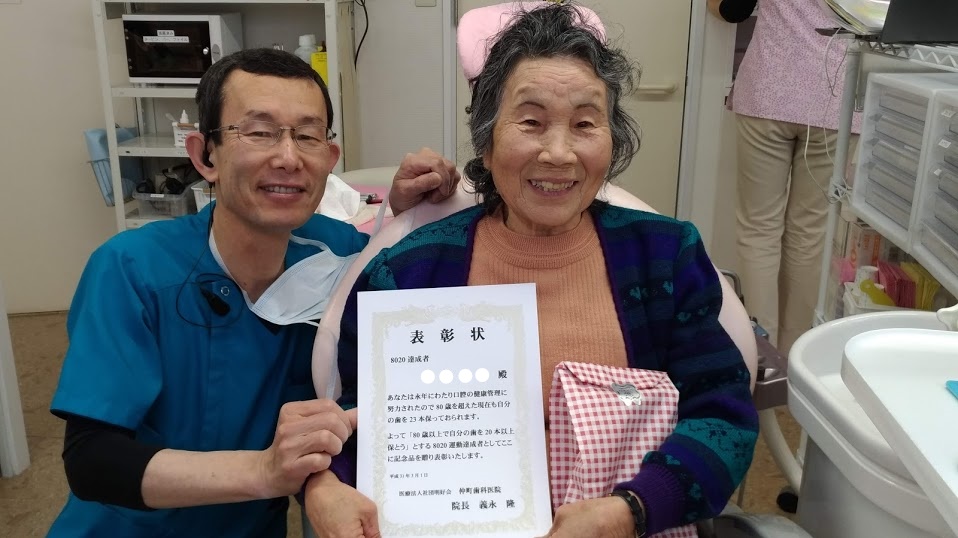 表彰状
8020達成者
殿
あなたは永年にわたり口腔の健康管理に
努力されたので80歳を超えた現在も自分
の歯を23本保っておられます。
よって「80歳以上で自分の歯を20本以上
保とう」とする8020運動達成者としてここ
に記念品を贈り表彰いたします。
平成31年3月1日
医療法人社団明好会 仲町歯科医院
院長 義永 隆